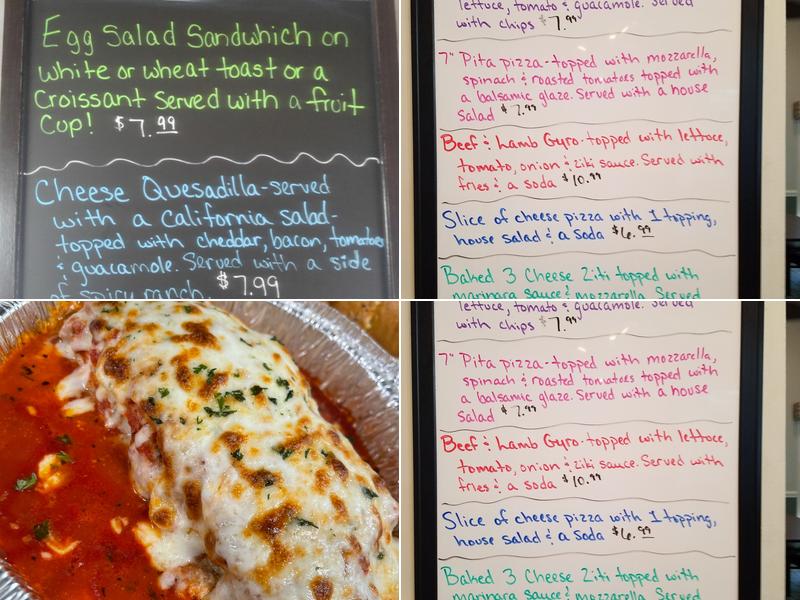 Egg Salad Sandwhich on
white or wheat toast or a
Croissant Served with a fruit
Cup! $7.99
Cheese Quesadilla-served
with a California salad-
topped with cheddar, bacon, tomatoes
& guacamole. Served with a side
of spicy ranch. $7.99
lettuce, tomato & guacamole. Served
with chips $7.99
7" Pita pizza-topped with mozzarella,
spinach & roasted tomatoes topped with
a balsamic glaze. Served with a house
Salad $7.99
Beef & Lamb Gyro-topped with lettuce,
tomato, onion & ziki sauce. Served with
fries & a soda $10.99
Slice of cheese pizza with 1 topping,
house salad & a soda $6.99
Baked 3 Cheese Ziti topped with
marinara sauce & mozzarella. Served
lettuce, tomato & guacamole. Served
with chips $7.99
7" Pita pizza-topped with mozzarella,
spinach & roasted tomatoes topped with
a balsamic glaze. Served with a house
Salad $7.99
Beef & Lamb Gyro-topped with lettuce,
tomato, onion & ziki sauce. Served with
fries & a soda $10.99
Slice of cheese pizza with 1 topping,
house salad & a soda $6.99
Baked 3 Cheese Ziti topped with
marinara sauce & mozzarella. Served